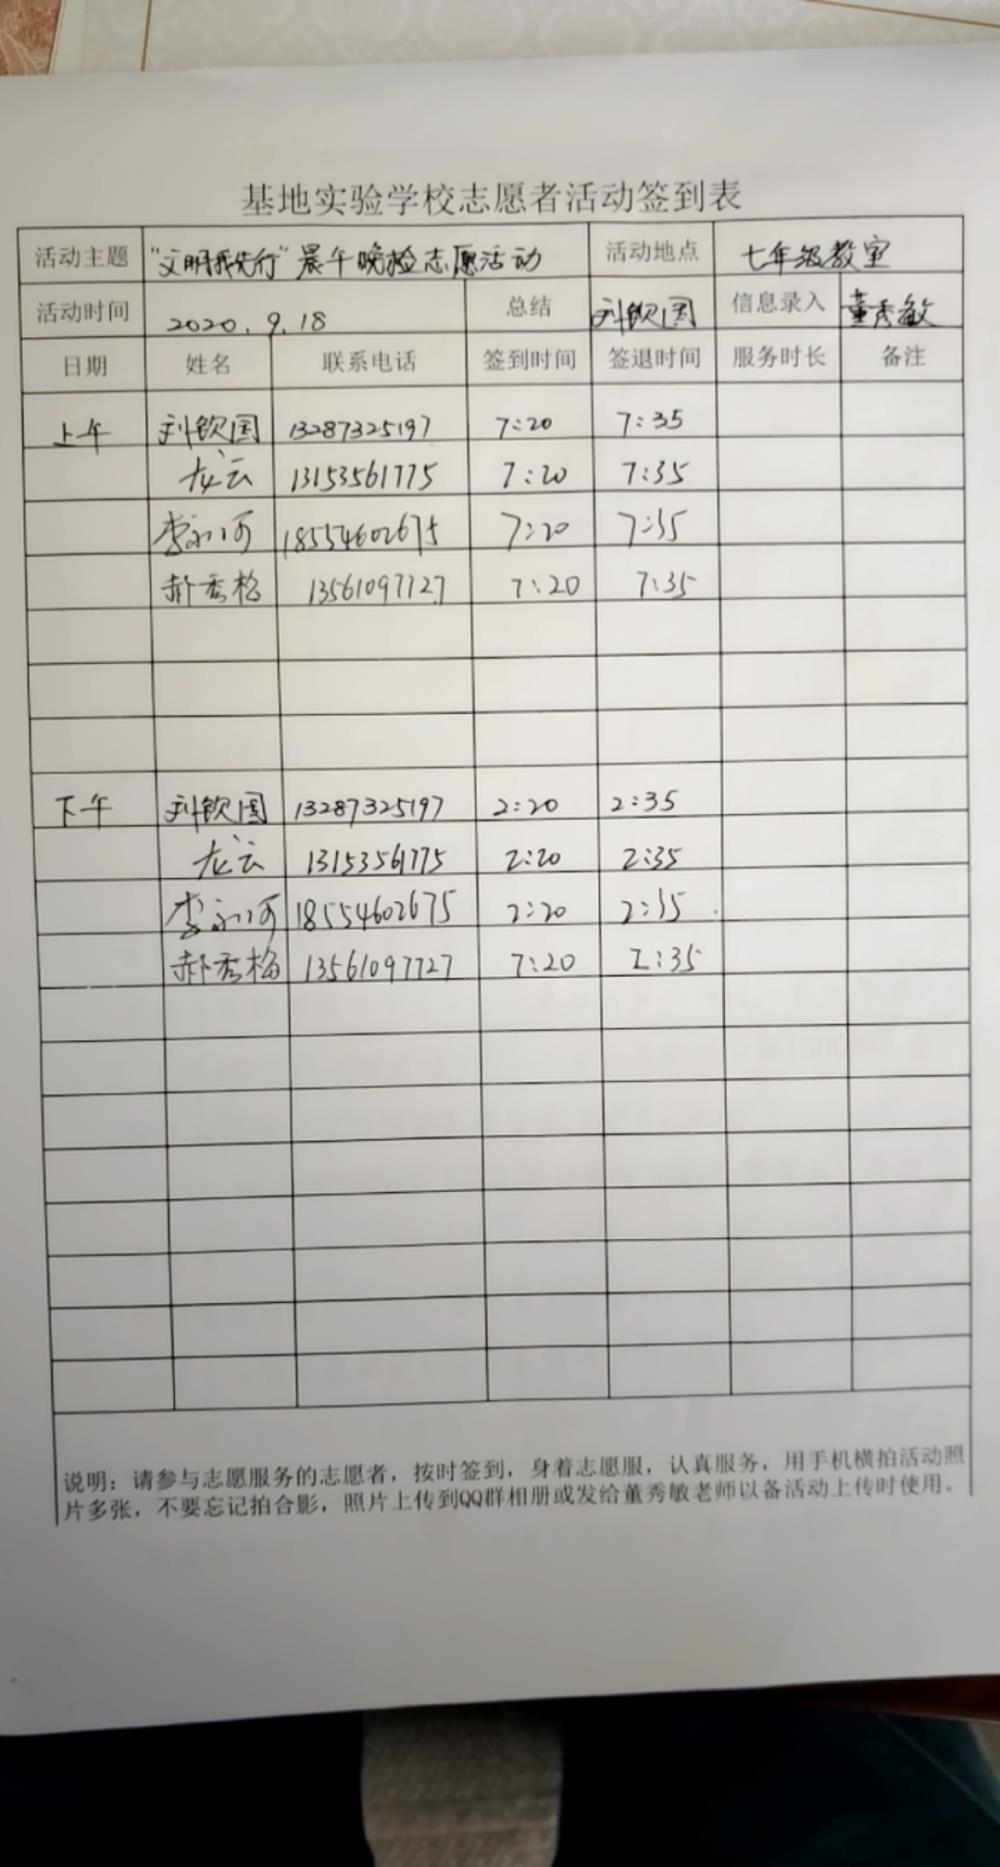 基地实验学校志愿者活动签到表
活动主题 "文明我先行"晨午晚检志愿活动 活动地点 七年级教室
活动时间 2020.9.18 总结 刘钦国 信息录入 董秀敏
日期 姓名 联系电话 签到时间 签退时间 服务时长 备注
上午 刘钦国 13287325197 7:20 7:35
龙云 13153561775 7:20 7:35
李永河 18554602675 7:20 7:35
郝秀梅 13561097727 7:20 7:35
下午 刘钦国 13287325197 2:20 2:35
龙云 13153561775 2:20 2:35
李永河 18554602675 2:20 2:35
郝秀梅 13561097727 7:20 2:35
说明：请参与志愿服务的志愿者，按时签到，身着志愿服，认真服务，用手机横拍活动照
片多张，不要忘记拍合影，照片上传到QQ群相册或发给董秀敏老师以备活动上传时使用。